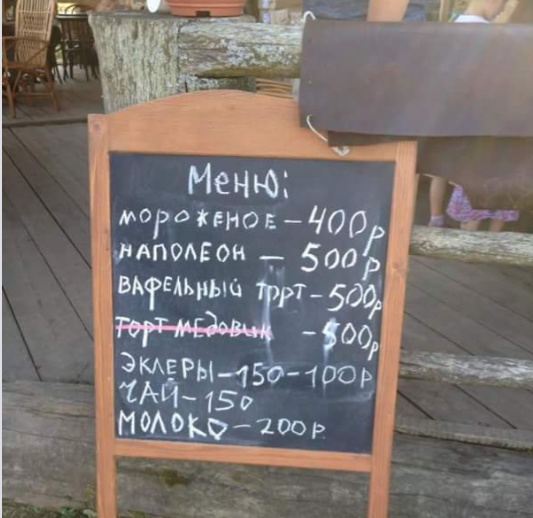 Меню:
МОРОЖЕНОЕ – 400р
НАПОЛЕОН – 500р
ВАФЕЛЬНЫЙ ТОРТ – 500р
ТОРТ МЕДОВИК – 500р
ЭКЛЕРЫ – 150 – 100Р
ЧАЙ – 150
МОЛОКО – 200Р